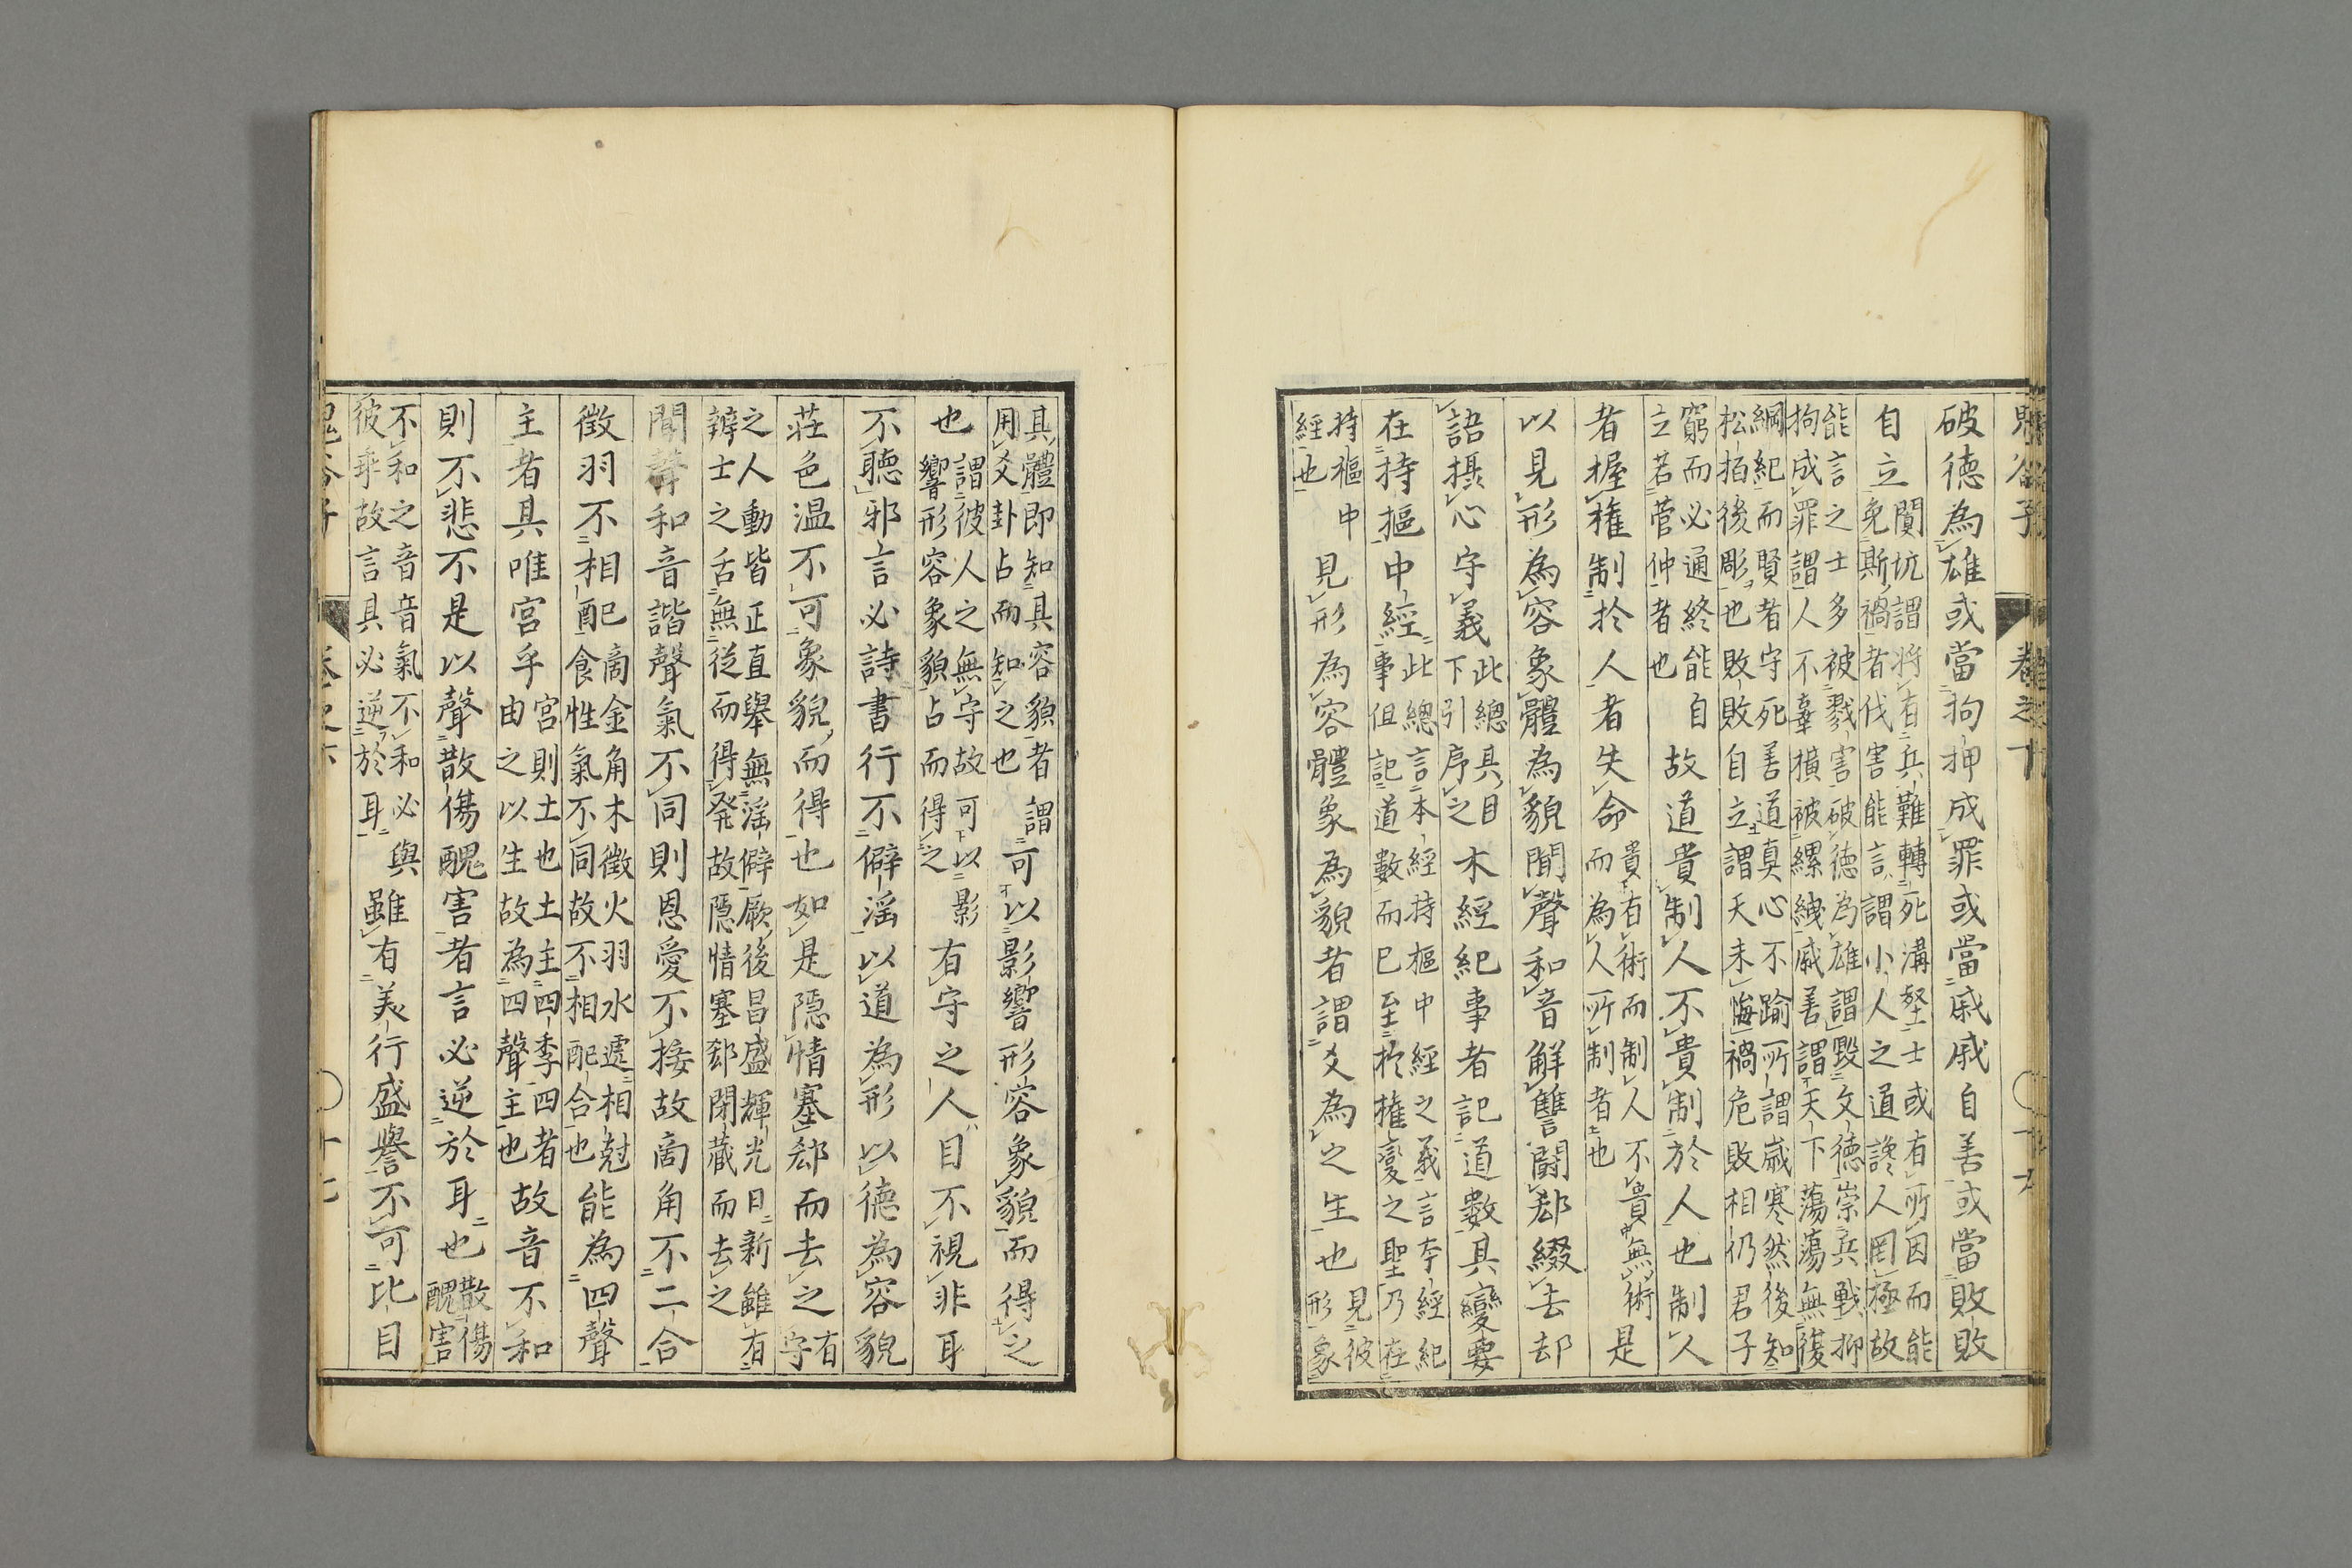 鬼谷子 卷之下
破徳為雄或當拘押成罪或當戚戚自善或當敗敗
自立闃坑謂将有兵難轉死溝壑士或有所因而能
免斯禍者伐害能言謂小人之道讒人罔極故
能言之士多被戮害破徳為雄謂毀文徳崇兵戦抑
拘成罪謂人不辜横被縲絏戚善謂天下蕩蕩無復
綱紀而賢者守死善道真心不踰所謂歳寒然後知
松栢後彫也敗敗自立謂天未悔禍危敗相仍君子
窮而必通終能自
立若菅仲者也
故道貴制人不貴制於人也制人
者握権制於人者失命
貴有術而制人不貴無術
而為人所制者也
是
以見形為容象體為貌聞聲和音解讐闘郄綴去却
語摂心守義
此總其目
下引序之
木經紀事者記道數其變要
在持樞中經
此總言本經持樞中經之義言本經紀
事但記道數而已至於権變之聖乃在
持樞中
經也
見形為容體象為貌者謂爻為之生也
見彼
形象
具體即知其容貌者
用爻卦占而知之也
謂可以影響形容象貌而得之
也
謂彼人之無守故可以影
響形容象貌占而得之
有守之人目不視非耳
不聽邪言必詩書行不僻滛以道為形以徳為容貌
莊色温不可象貌而得也如是隠情塞郄而去之
有
守
之人動皆正直舉無滛僻厥後昌盛輝光日新雖有
辨士之舌無從而得発故隠情塞郄閉藏而去之
聞聲和音諧聲氣不同則恩愛不接故商角不二合
徵羽不相配
商金角木徵火羽水遞相尅
食性氣不同故不相配合也
能為四聲
主者具唯宮乎
宮則土也土主四季四者
由之以生故為四聲主也
故音不和
則不悲不是以聲散傷醜害者言必逆於耳也
散傷
醜害
不和之音音氣不和必與
彼乖故言具必逆於耳
雖有美行盛譽不可比目